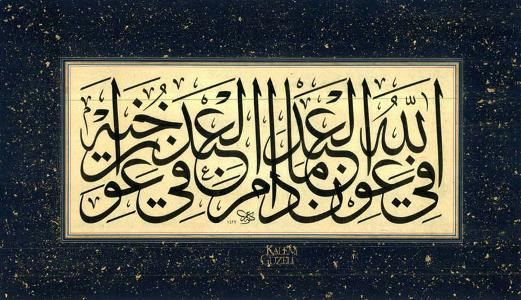 الله في عون العبد ما دام العبد في عون أخيه
١٤٢٢
KALEM
GÜZELİ